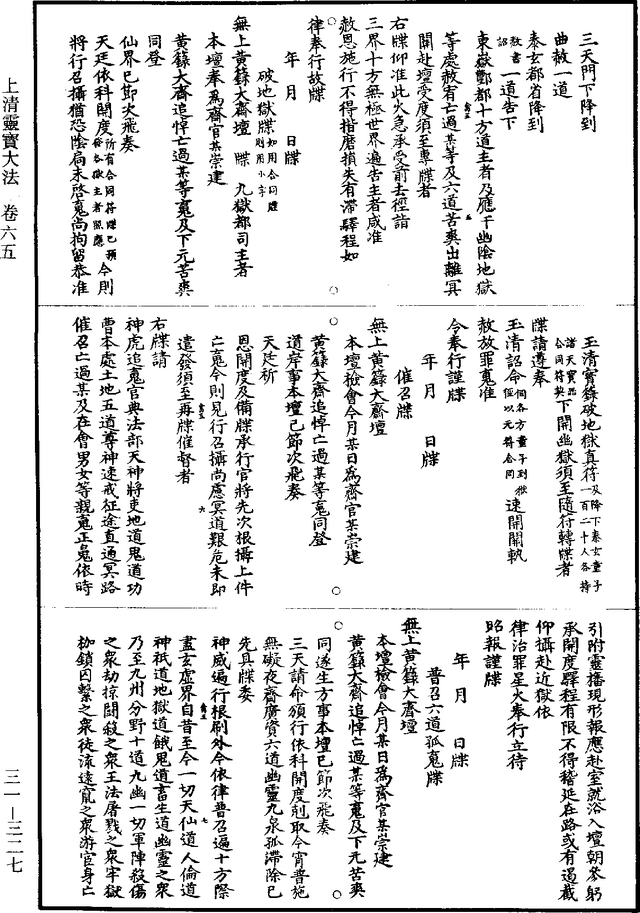 三天門下降到
曲赦一道
泰玄都省降到
敕書一道告下
詔
東嶽酆都十方道主者及應干幽陰地獄
等處赦宥亡過某等及六道苦爽出離冥
關赴壇受度須至專牒者
右牒仰准此火急承受前去徑詣
三界十方無極世界遍告主者咸准
赦恩施行不得揩磨損失有滯驛程如
律奉行故牒
年 月 日牒
破地獄牒 如用合同牒則用小字
無上黃籙大齋壇 牒 九獄都司主者
本壇奉為齋官某崇建
黃籙大齋追悼亡過某等䰟及下元苦爽
同登
仙界已節次飛奏
天廷依科開度 所有合同符牒已頒發各獄主者照應 今則
將行召攝猶恐陰局未啓䰟尚拘留恭准
玉清寶籙破地獄真符 及降下泰玄童子一百二十人各持
諸天寶品合同符契 下開幽獄須至隨符轉牒者
牒請遵奉
玉清詔命 伺各方童子到獄仰以元符合同 速開關軌
赦放罪䰟准
令奉行謹牒
年 月 日牒
催召牒
無上黃籙大齋壇
本壇檢會今月某日為齋官某崇建
黃籙大齋追悼亡過某等䰟同登
道岸事本壇已節次飛奏
天廷祈
恩開度及備牒承行官將先次根攝上件
亡䰟今則見行召攝尚慮冥道艱危未即
遣發須至再牒催督者
右牒請
神虎追䰟官典法部天神將吏地道鬼道功
曹本處土地五道尊神速戒征途直通冥路
催召亡過某及在會男女等親䰟正䰟依時
引附靈播現形報應赴室就浴入壇朝參躬
承開度驛程有限不得稽延在路或有遏截
仰攝赴近獄依
律治罪星火奉行立待
昭報謹牒
年 月 日牒
普召六道孤䰟牒
無上黃籙大齋壇
本壇檢會今月某日為齋官某崇建
黃籙大齋追悼亡過某等䰟及下元苦爽
同遂生方事本壇已節次飛奏
三天請命頒行依科開度剋取今宵普施
無礙夜齋廣資六道幽靈九泉孤滯除已
先具牒委
神威遍行根刷外今依律普召遍十方際
盡玄虛界自昔至今一切天仙道人倫道
神祇道地獄道餓鬼道畜生道幽靈之眾
乃至九州分野十道九幽一切軍陣殺傷
之眾劫掠鬪殺之眾王法屠戮之眾牢獄
枷鎖囚繫之眾徒流遠竄之眾游官身亡
上清靈寶大法 卷六五
三一—三二七